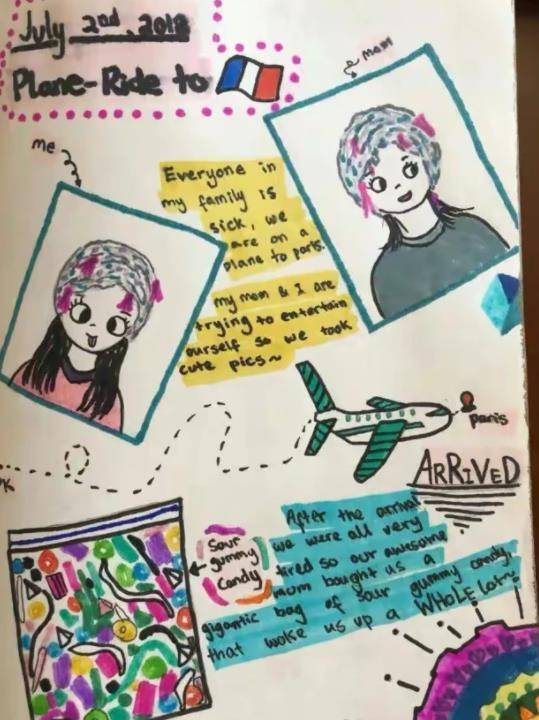 July 2nd, 2018
Plane-Ride to
mom
me
Everyone in
my family is
sick, we
are on a
plane to paris.
my mom & I are
trying to entertain
ourself so we took
cute pics~
paris
ARRIVED
After the arrival
we were all very
tired so our awesome
mom bought us a
gigantic bag of sour gummy candy,
that woke us up a WHOLE lot!
Sour
gummy
Candy